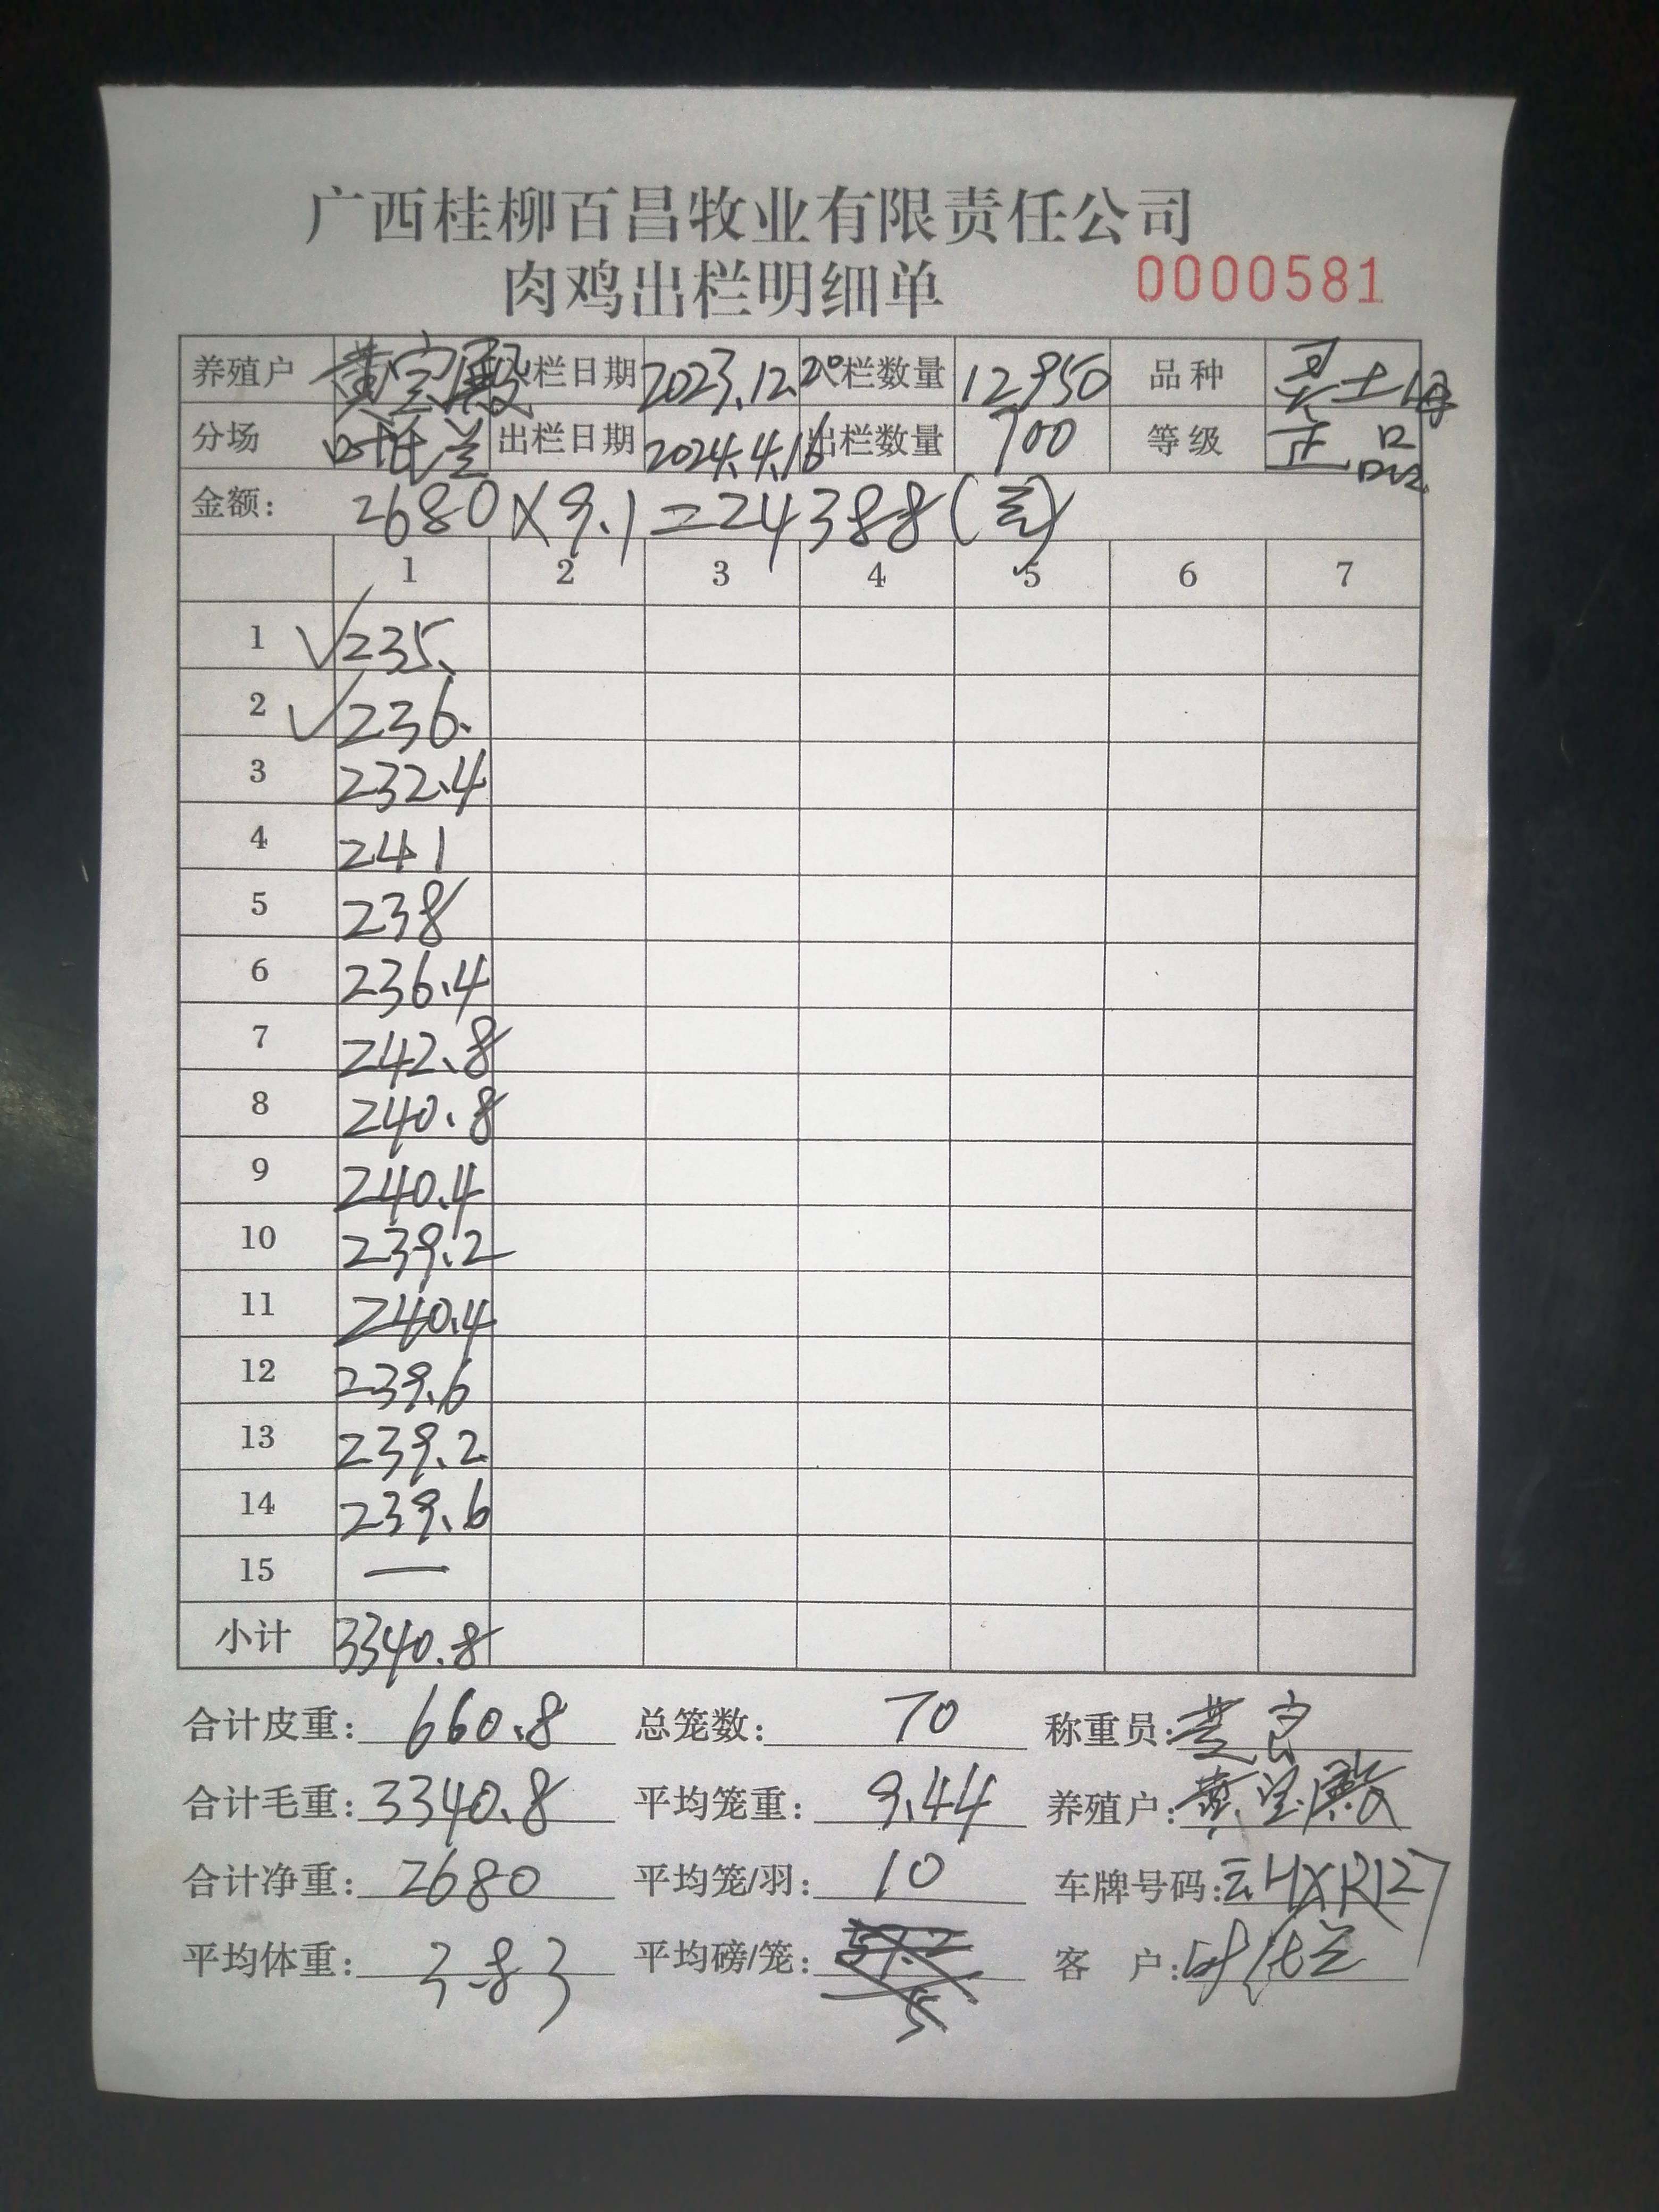 广西桂柳百昌牧业有限责任公司
肉鸡出栏明细单 0000581
养殖户 黄宝殿 入栏日期 2023.12.20 入栏数量 12950 品种 土
分场 叶 兰 出栏日期 2024.4.16 出栏数量 700 等级 正品
金额: 2680×9.1=24388(元)
1 2 3 4 5 6 7
1 √235.
2 √236.
3 232.4
4 241
5 238
6 236.4
7 242.8
8 240.8
9 240.4
10 239.2
11 240.4
12 239.6
13 239.2
14 239.6
15 —
小计 3340.8
合计皮重: 660.8 总笼数: 70 称重员:
合计毛重: 3340.8 平均笼重: 9.44 养殖户: 黄宝殿
合计净重: 2680 平均笼/羽: 10 车牌号码: 云HXR127
平均体重: 3.83 平均磅/笼: 5 客 户: